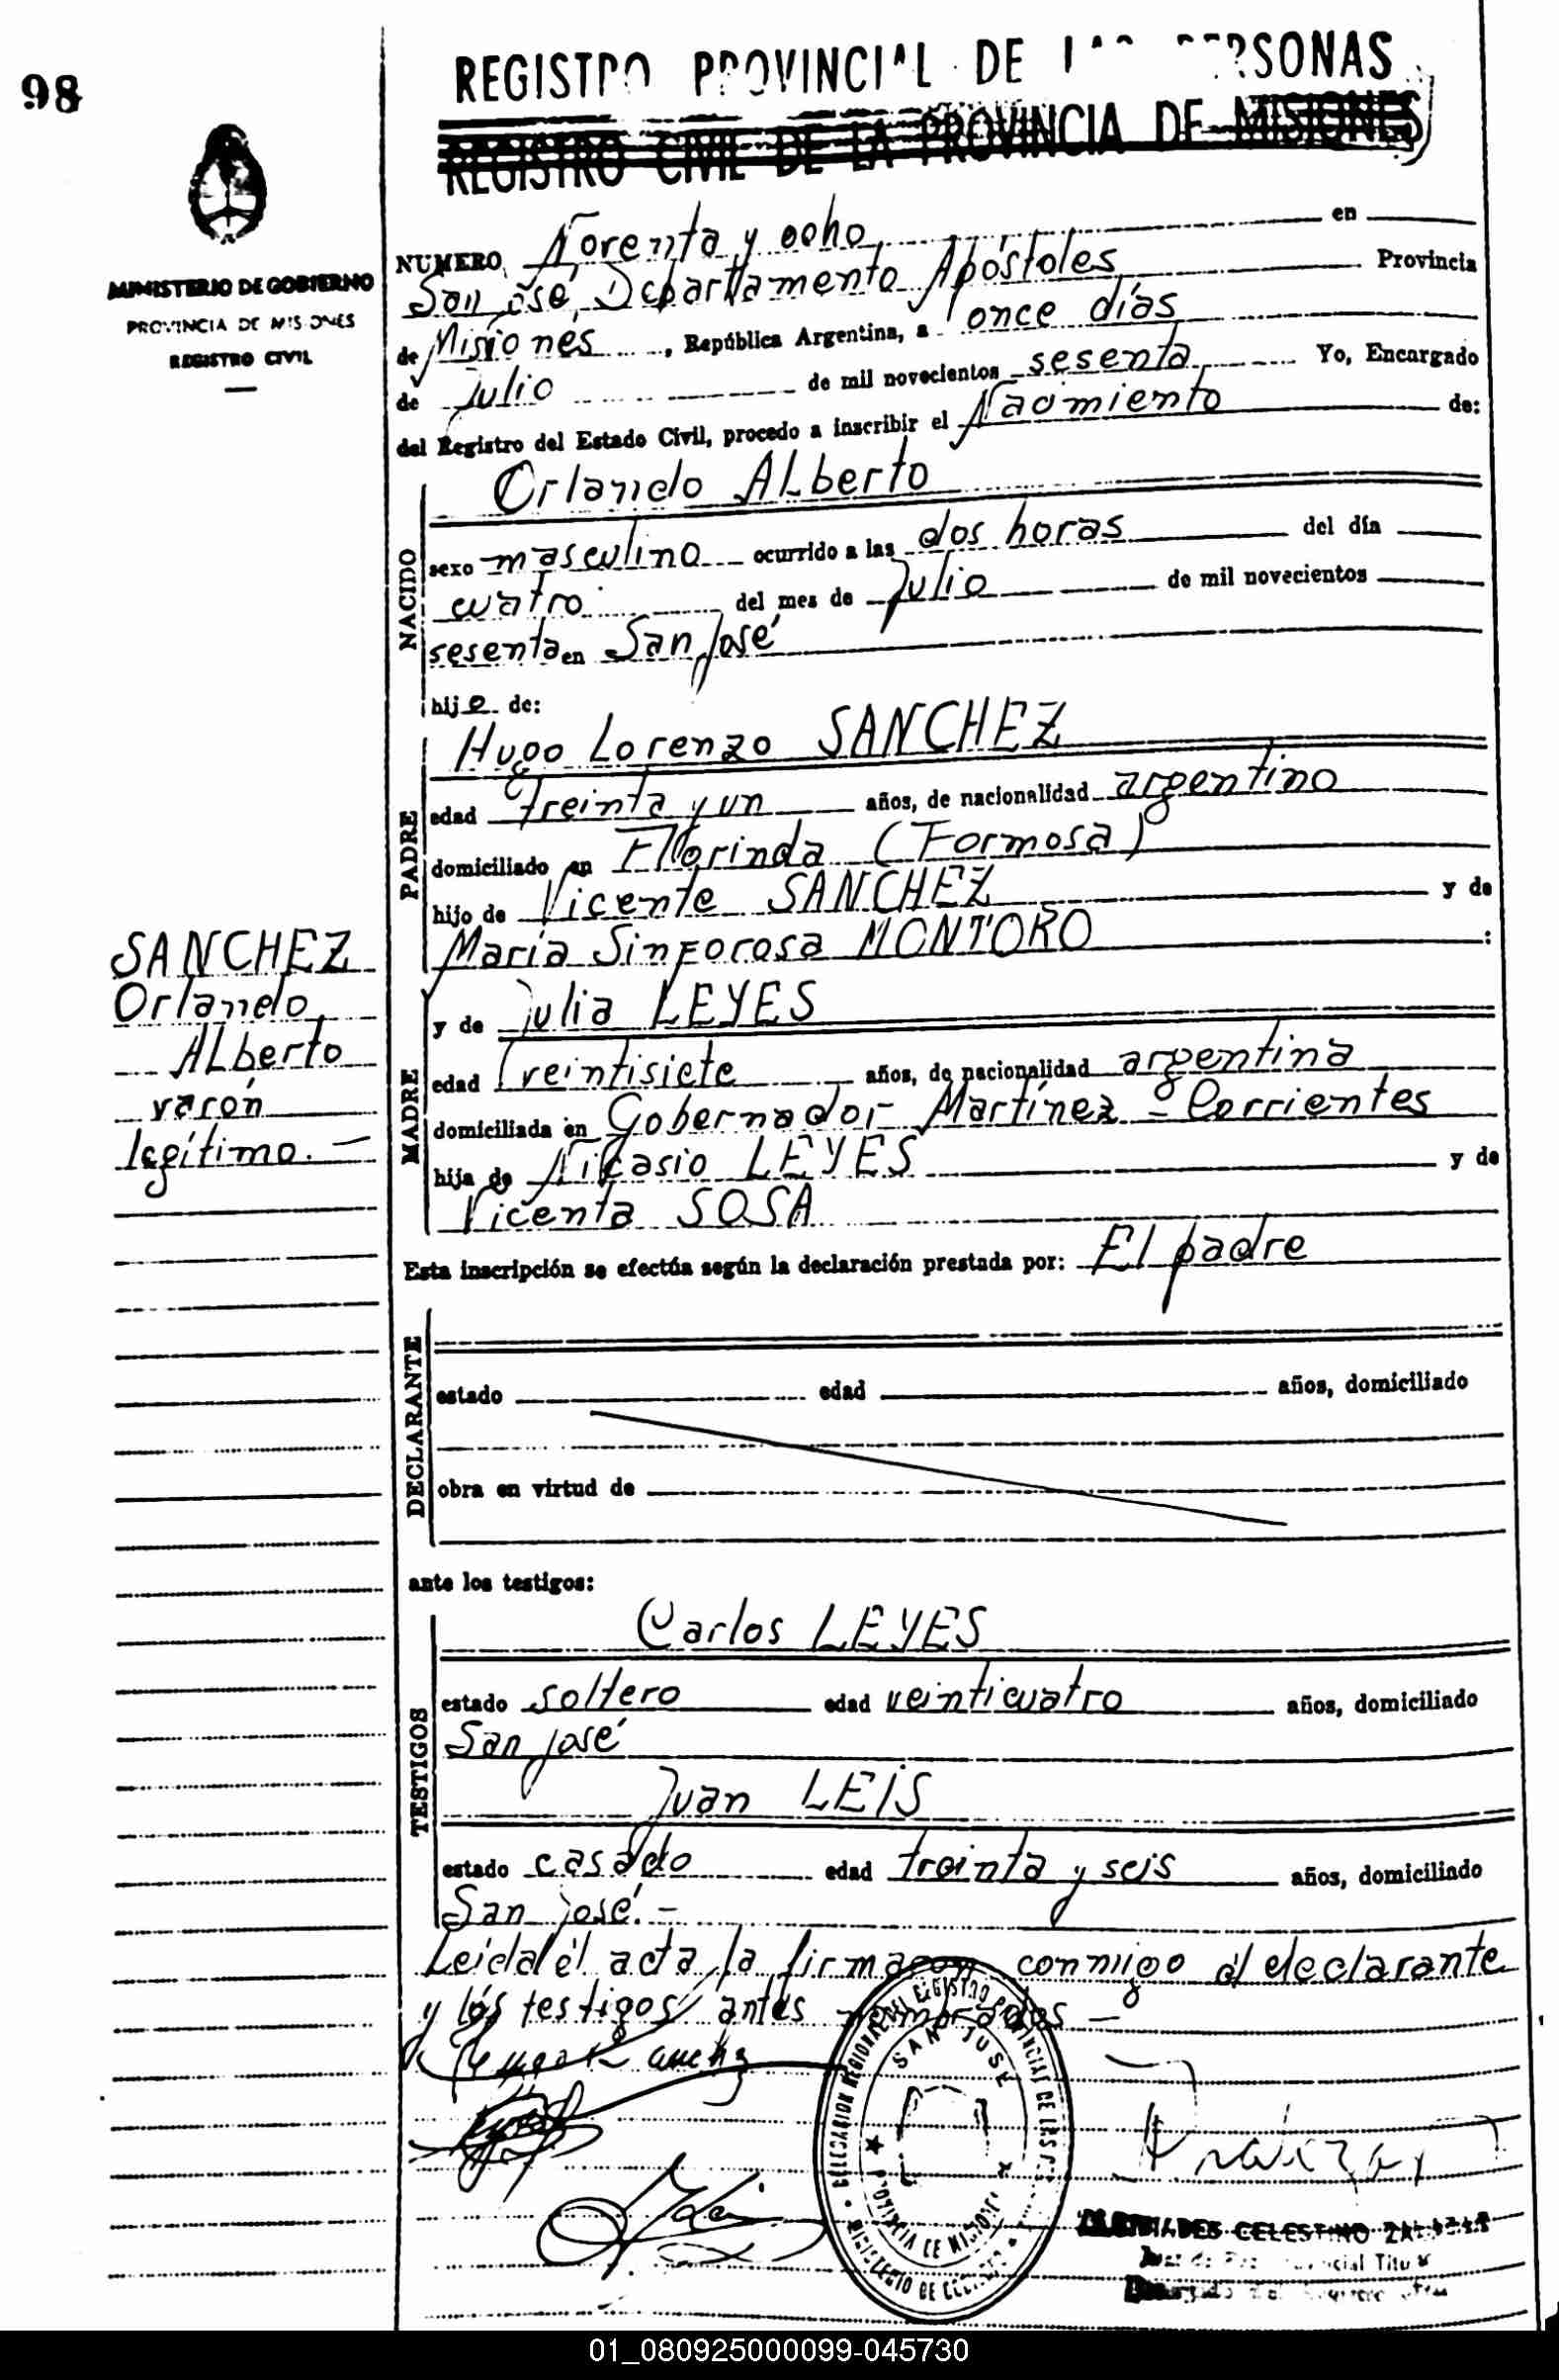 98
REGISTRO PROVINCIAL DE LAS PERSONAS
REGISTRO CIVIL DE LA PROVINCIA DE MISIONES
MINISTERIO DE GOBIERNO
PROVINCIA DE MISIONES
REGISTRO CIVIL
NUMERO Noventa y ocho en
San José, Departamento Apóstoles Provincia
de Misiones, República Argentina, a once días
de Julio de mil novecientos sesenta Yo, Encargado
del Registro del Estado Civil, procedo a inscribir el Nacimiento de:
NACIDO
Orlando Alberto
sexo masculino ocurrido a las dos horas del día
cuatro del mes de Julio de mil novecientos
sesenta en San José
hijo de:
PADRE
Hugo Lorenzo SANCHEZ
edad treinta y un años, de nacionalidad argentino
domiciliado en Florinda (Formosa)
hijo de Vicente SANCHEZ y de
María Sinforosa MONTORO :
MADRE
y de Julia LEYES
edad treintisiete años, de nacionalidad argentina
domiciliada en Gobernador Martínez - Corrientes
hija de Nicasio LEYES y de
Vicenta SOSA
SANCHEZ
Orlando
Alberto
varón
legítimo.-
Esta inscripción se efectúa según la declaración prestada por: El padre
DECLARANTE
estado edad años, domiciliado
obra en virtud de
ante los testigos:
TESTIGOS
Carlos LEYES
estado soltero edad veinticuatro años, domiciliado
San José
Juan LEIS
estado casado edad treinta y seis años, domiciliado
San José.-
Leída el acta la firmaron conmigo el declarante
y los testigos antes nombrados -
DELEGACION REGIONAL DEL REGISTRO PROVINCIAL DE LAS
SAN JOSE
PROVINCIA DE MISIONES
MINISTERIO DE GOBIERNO
CELESTINO
01_080925000099-045730